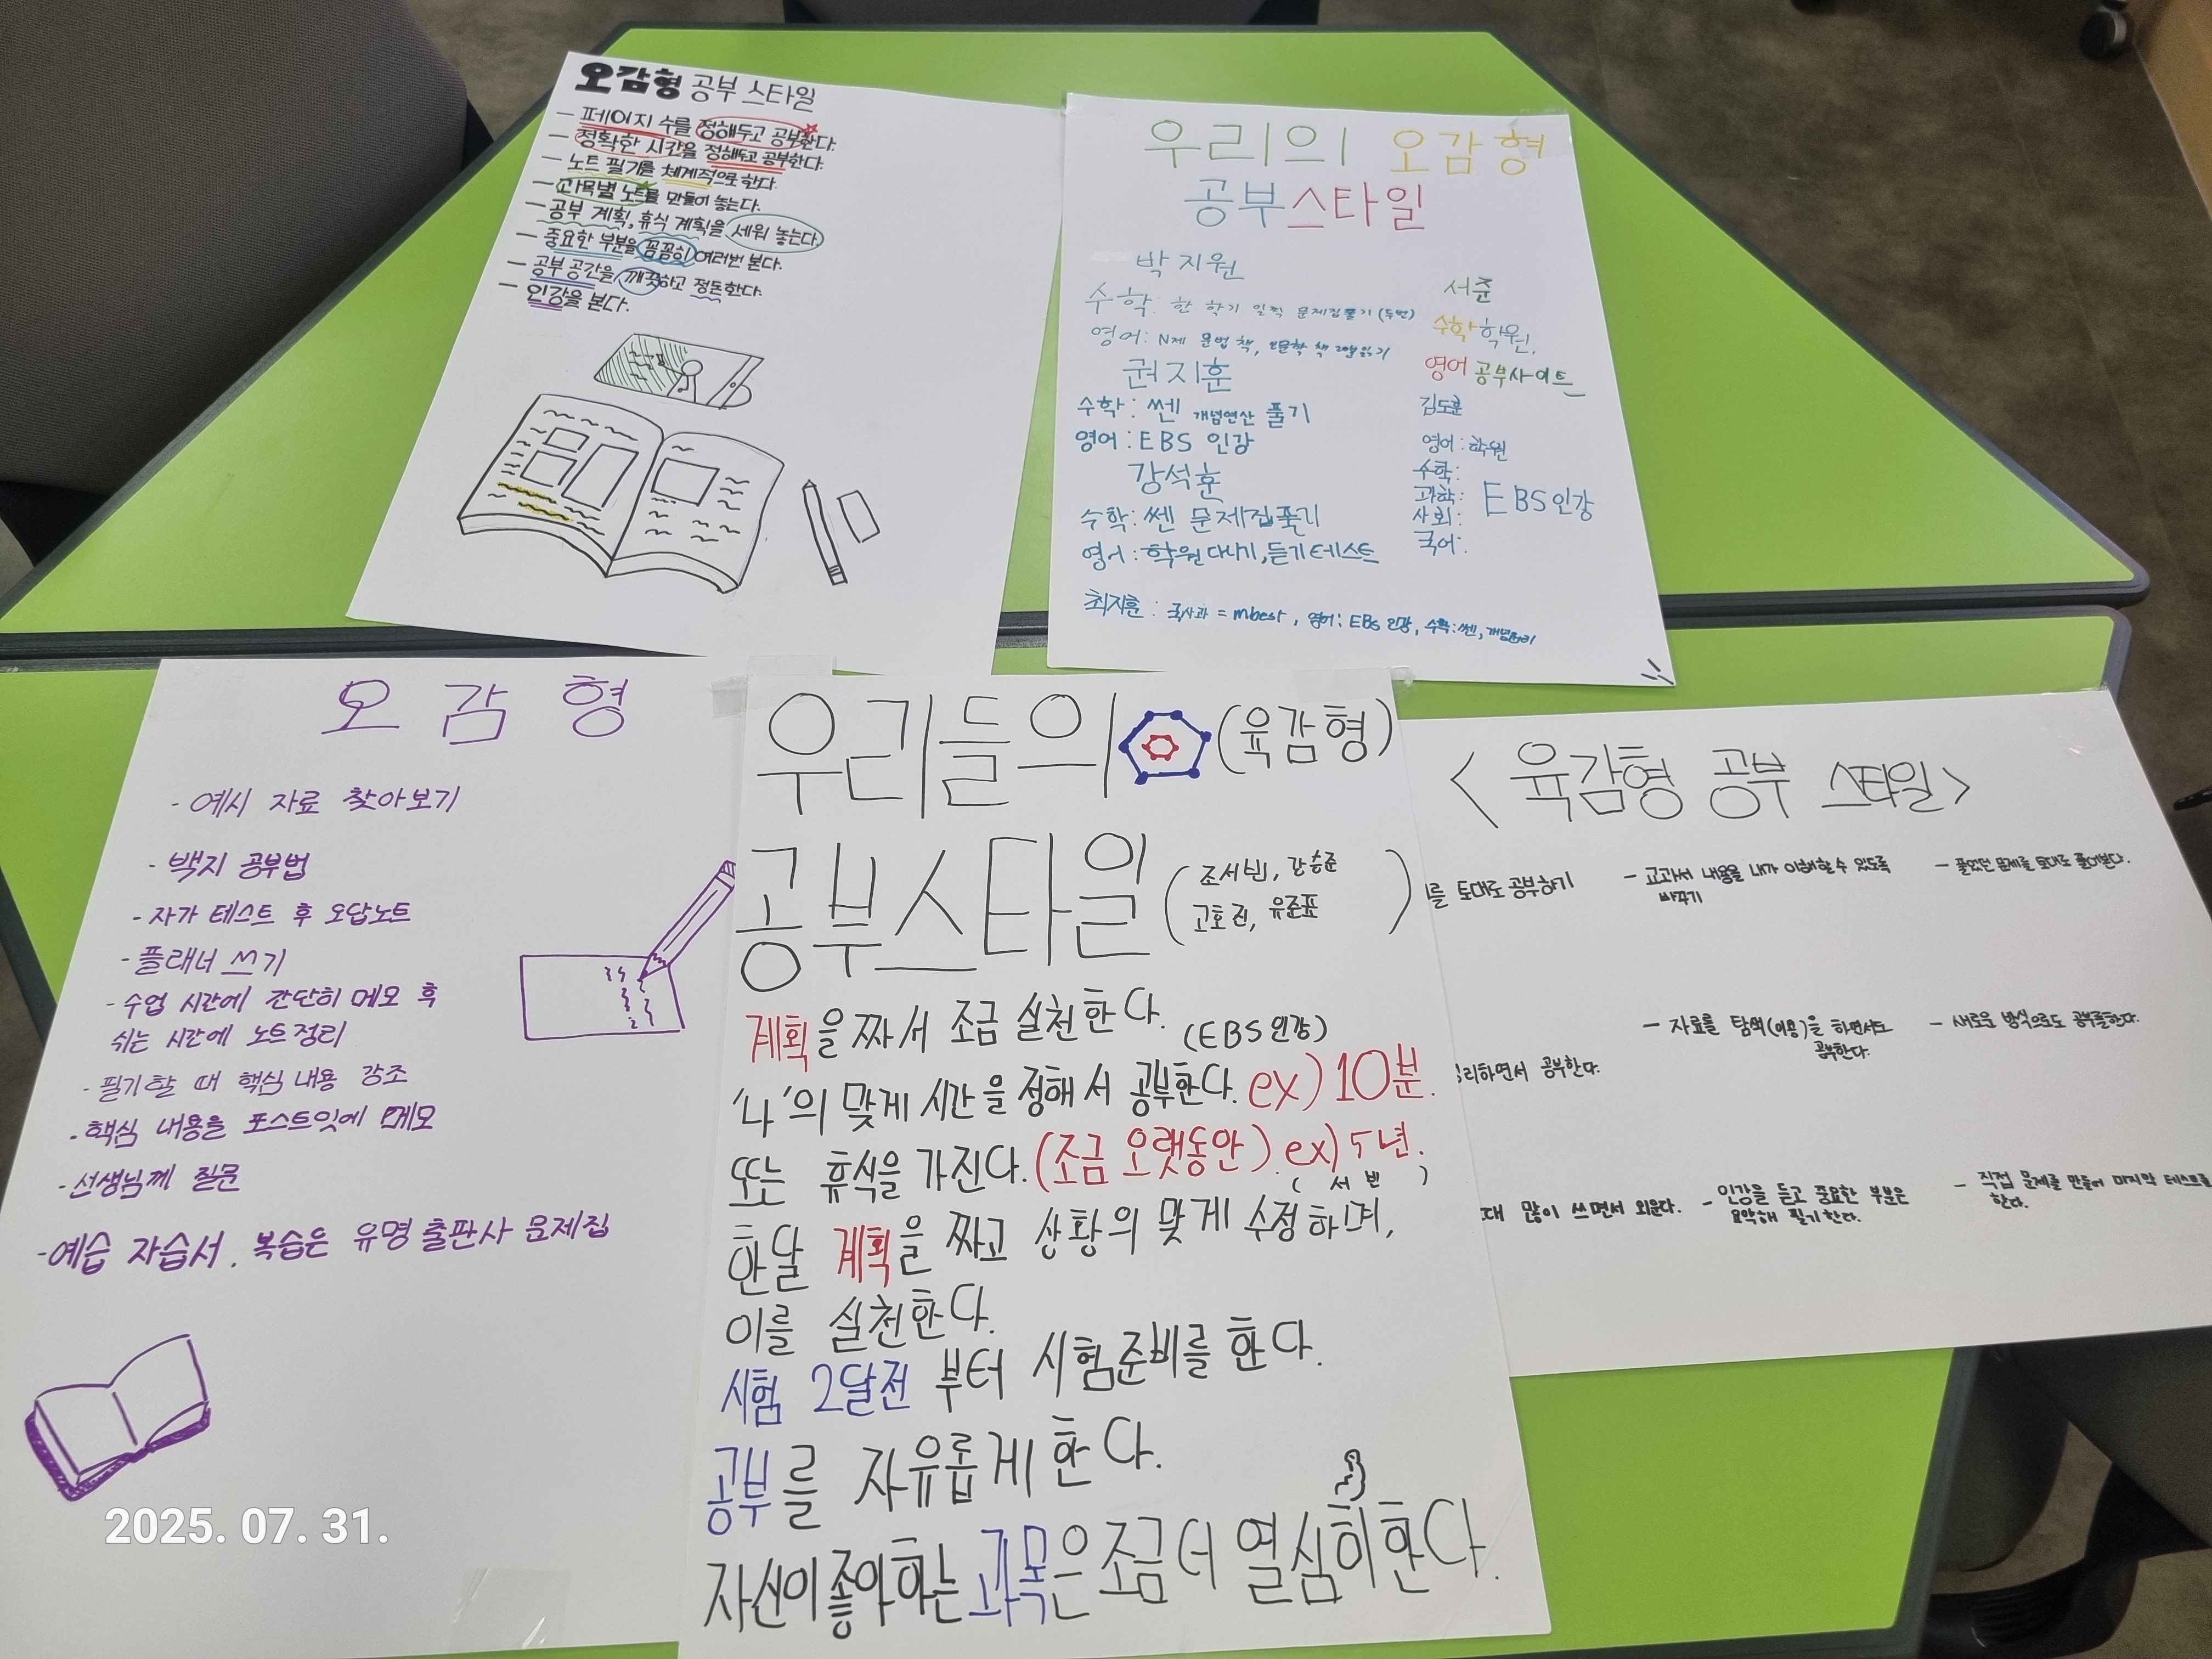 오감형 공부 스타일
- 페이지 수를 정해두고 공부한다.
- 정확한 시간을 정해두고 공부한다.
- 노트 필기를 체계적으로 한다.
- 과목별 노트를 만들어 놓는다.
- 공부 계획, 휴식 계획을 세워 놓는다.
- 중요한 부분을 꼼꼼히 여러번 본다.
- 공부 공간을 깨끗하고 정돈한다.
- 인강을 본다.
우리의 오감형
공부스타일
박지원
수학: 한 학기 일찍 문제집풀기 (두번)
영어: N제 문법 책, 책 읽기
권지훈
수학: 쎈 개념연산 풀기
영어: EBS 인강
강석훈
수학: 쎈 문제집풀기
영어: 학원다니기, 듣기테스트
서준
수학학원.
영어 공부사이트
김도훈
영어: 학원
수학:
과학: EBS인강
사회:
국어:
최지훈: 국사과 = mbest, 영어: EBS 인강, 수학: 쎈,
오감형
- 예시 자료 찾아보기
- 백지 공부법
- 자가 테스트 후 오답노트
- 플래너 쓰기
- 수업 시간에 간단히 메모 후
쉬는 시간에 노트정리
- 필기할 때 핵심 내용 강조
- 핵심 내용을 포스트잇에 메모
- 선생님께 질문
- 예습 자습서. 복습은 유명 출판사 문제집
2025. 07. 31.
우리들의 (육감형)
공부스타일 (조서빈, 강승준
고호진, 유준표)
계획을 짜서 조금 실천한다.
(EBS 인강)
'나'의 맞게 시간을 정해서 공부한다. ex) 10분.
또는 휴식을 가진다. (조금 오랫동안). ex) 5년.
(서빈)
한달 계획을 짜고 상황의 맞게 수정하며,
이를 실천한다.
시험 2달전 부터 시험준비를 한다.
공부를 자유롭게 한다.
자신이 좋아하는 과목은 조금 더 열심히 한다.
<육감형 공부 스타일>
를 토대로 공부하기
- 교과서 내용을 내가 이해할 수 있도록
바꾸기
- 풀었던 문제를 토대로 풀어본다.
리하면서 공부한다.
- 자료를 탐색(이용)을 하면서도
공부한다.
- 새로운 방식으로도 공부를한다.
때 많이 쓰면서 외운다.
- 인강을 듣고 중요한 부분은
요약해 필기한다.
- 직접 문제를 만들어 마지막 테스트를
한다.